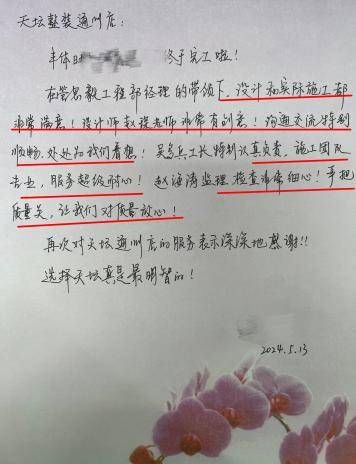 天坛整装通州店:
终于完工啦!
在曾思毅工程部经理的带领下,设计和实际施工都
非常满意!设计师赵琛老师非常有创意!沟通交流特别
顺畅,处处为我们着想!吴多兵工长特别认真负责,施工团队
专业,服务超级耐心!赵海涛监理,检查非常细心!严把
质量关,让我们对质量放心!
再次对天坛通州店的服务表示深深地感谢!!
选择天坛真是最明智的!
2024.5.13